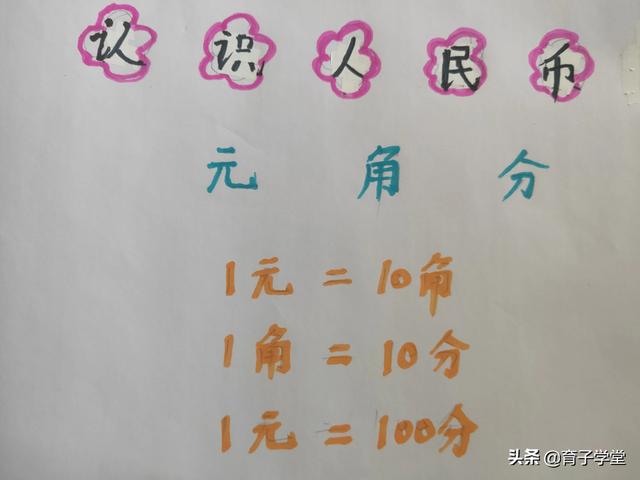 认识人民币
元 角 分
1元=10角
1角=10分
1元=100分
头条 @育子学堂